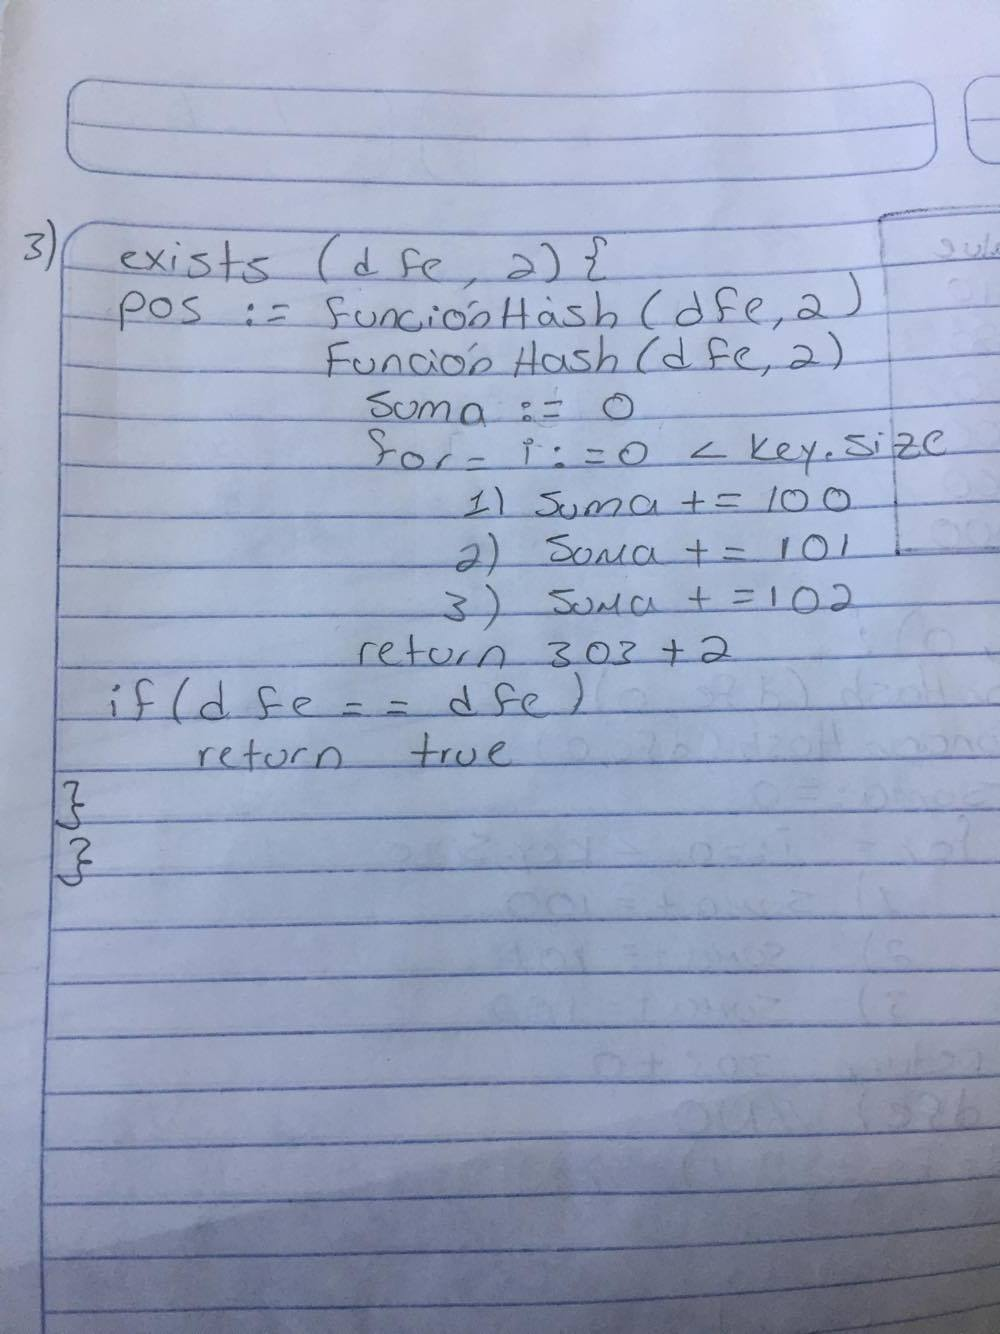 3) exists (dfe, 2) {
pos := funciónHash (dfe, 2)
FunciónHash (dfe, 2)
suma := 0
for = i := 0 < key.size
1) suma += 100
2) suma += 101
3) suma += 102
return 303 + 2
if (dfe == dfe)
return true
}
}